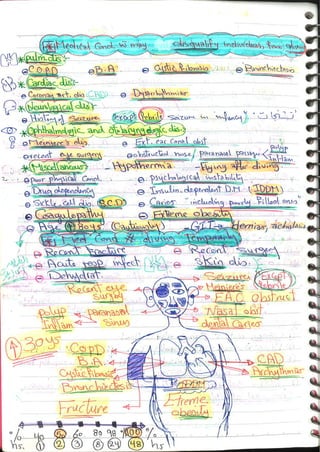 * Medical Cond. w may disqualify individuals from diving
* pulm. dis.
C.O.P.D B.A Cystic fibrosis Bronchiectasis
* Cardiac dis.
Coronary art. dis CAD Dysrhythmias
* Neurological dis.
History of Seizures except Febrile Seizure in infancy
* Ophthalmologic and otolaryngologic dis.
Meniere's dis. Ext. ear canal obst
recent eye surgery obstructed nose/paranasal passage polyp Inflam
* Miscellaneous Hypothermia Flying after diving
Poor physical Cond. Psychological instability
Drug dependency Insulin dependent D.M (IDDM)
Sickle cell dis. SCD Caries including poorly filled ones
Coagulopathy Extreme obesity
Age (Cautiously) GIT hernias
* Med Cond diving Temporarily
Recent Fracture Recent Surgery
Acute resp infect Skin dis.
Dehydration
Seizure Except febrile
Recent eye surgery Meniere's
EAC Obstruct
Polyp Inflam paranasal Sinus Nasal obst
dental Caries
↑ 30ys
COPD
B.A CAD
Cystic fibrosis Arrhythmias
Bronchiectasis
Fracture Extreme obesity
40 60 80 98 100 %
hs. 1 2 3 8 24 48 hs